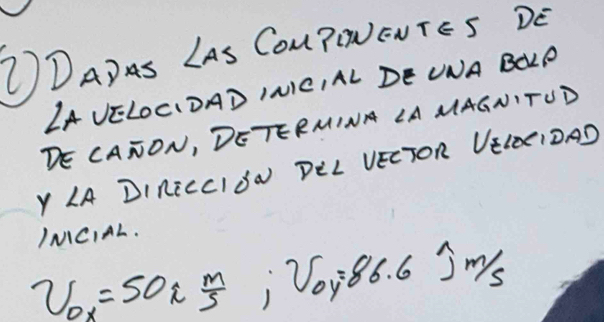 2) DADAS LAS COMPONENTES DE
LA VELOCIDAD INICIAL DE UNA BOLA
DE CAÑON, DETERMINA LA MAGNITUD
Y LA DIRECCIÓN DEL VECTOR VELOCIDAD
INICIAL.
V₀ₓ = 50 î m/s ; V₀ᵧ = 86.6 ĵ m/s